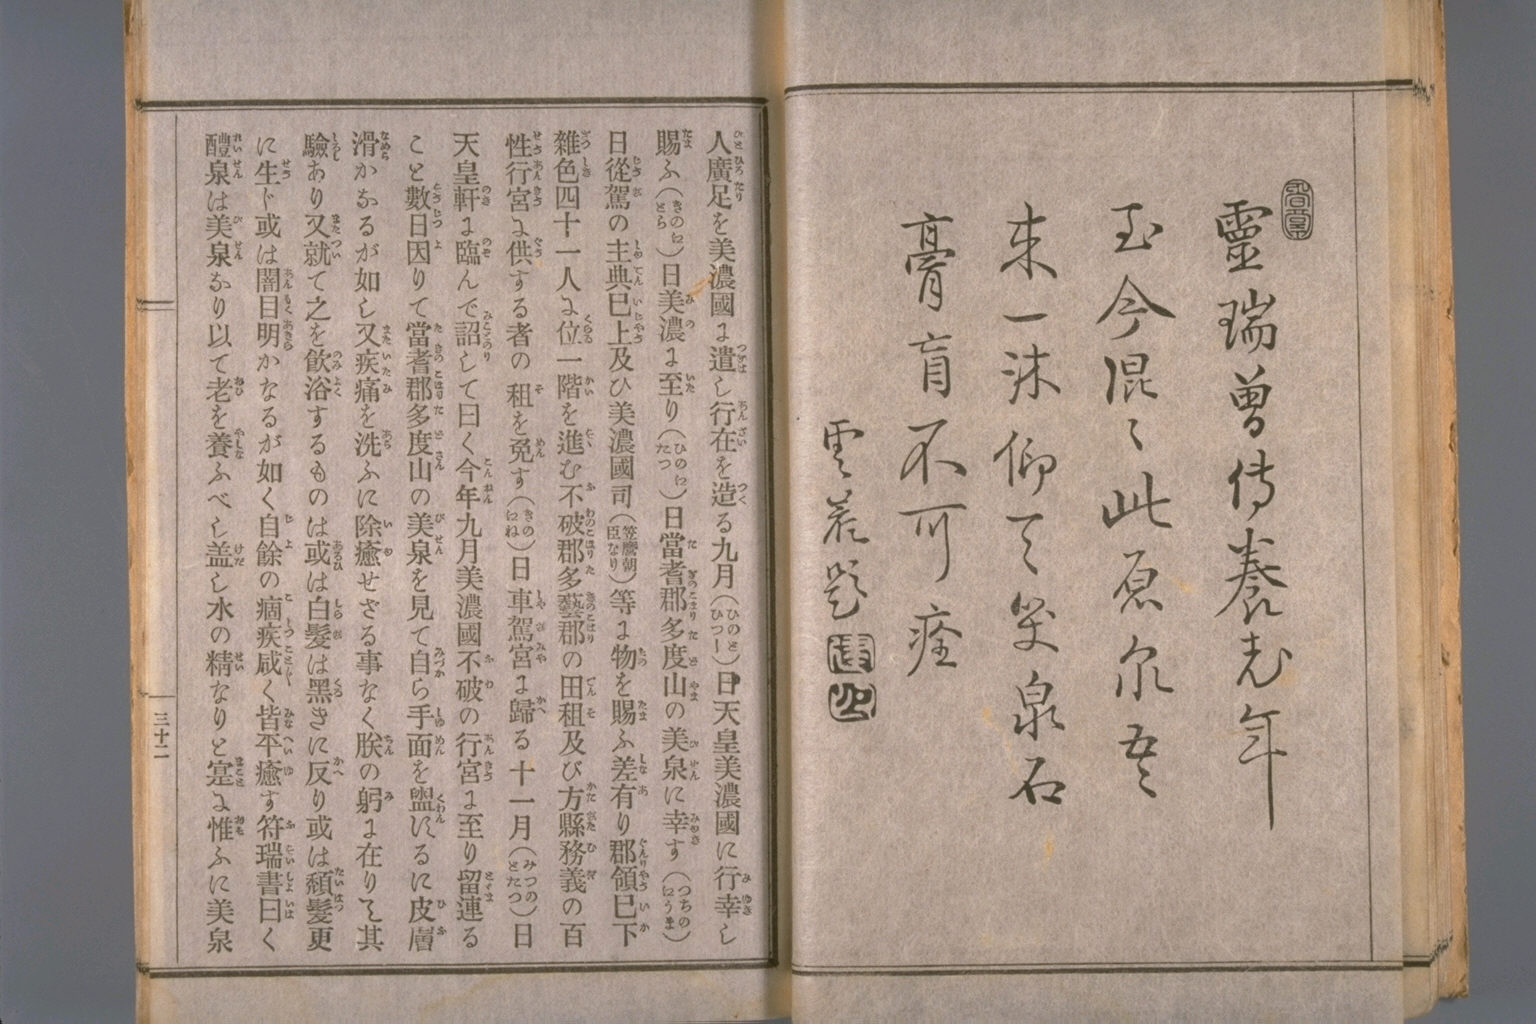 靈瑞曽傳養老年
至今混々此原泉吾
来一沐仰天笑泉石
膏肓不可痊
人廣足を美濃國に遣し行在を造る九月(ひのとひつじ)日天皇美濃國に行幸し
賜ふ(きのにとら)日美濃に至り(ひのにたつ)日當耆郡多度山の美泉に幸す(つちのにうま)
日從駕の主典已上及ひ美濃國司(笠麿朝臣なり)等に物を賜ふ差有り郡領已下
雜色四十一人に位一階を進む不破郡多藝郡の田租及び方縣務義の百
性行宮に供する者の租を免す(きのにね)日車駕宮に歸る十一月(みつのとたつ)日
天皇軒に臨んで詔して曰く今年九月美濃國不破の行宮に至り留連る
こと數日因りて當耆郡多度山の美泉を見て自ら手面を盥にるに皮層
滑かなるが如し又疾痛を洗ふに除癒せざる事なく朕の躬に在りて其
驗あり又就て之を飲浴するものは或は白髮は黑きに反り或は頽髮更
に生じ或は闇目明かなるが如く自餘の痼疾咸く皆平癒す符瑞書曰く
醴泉は美泉なり以て老を養ふべし盖し水の精なりと寔に惟ふに美泉
三十二